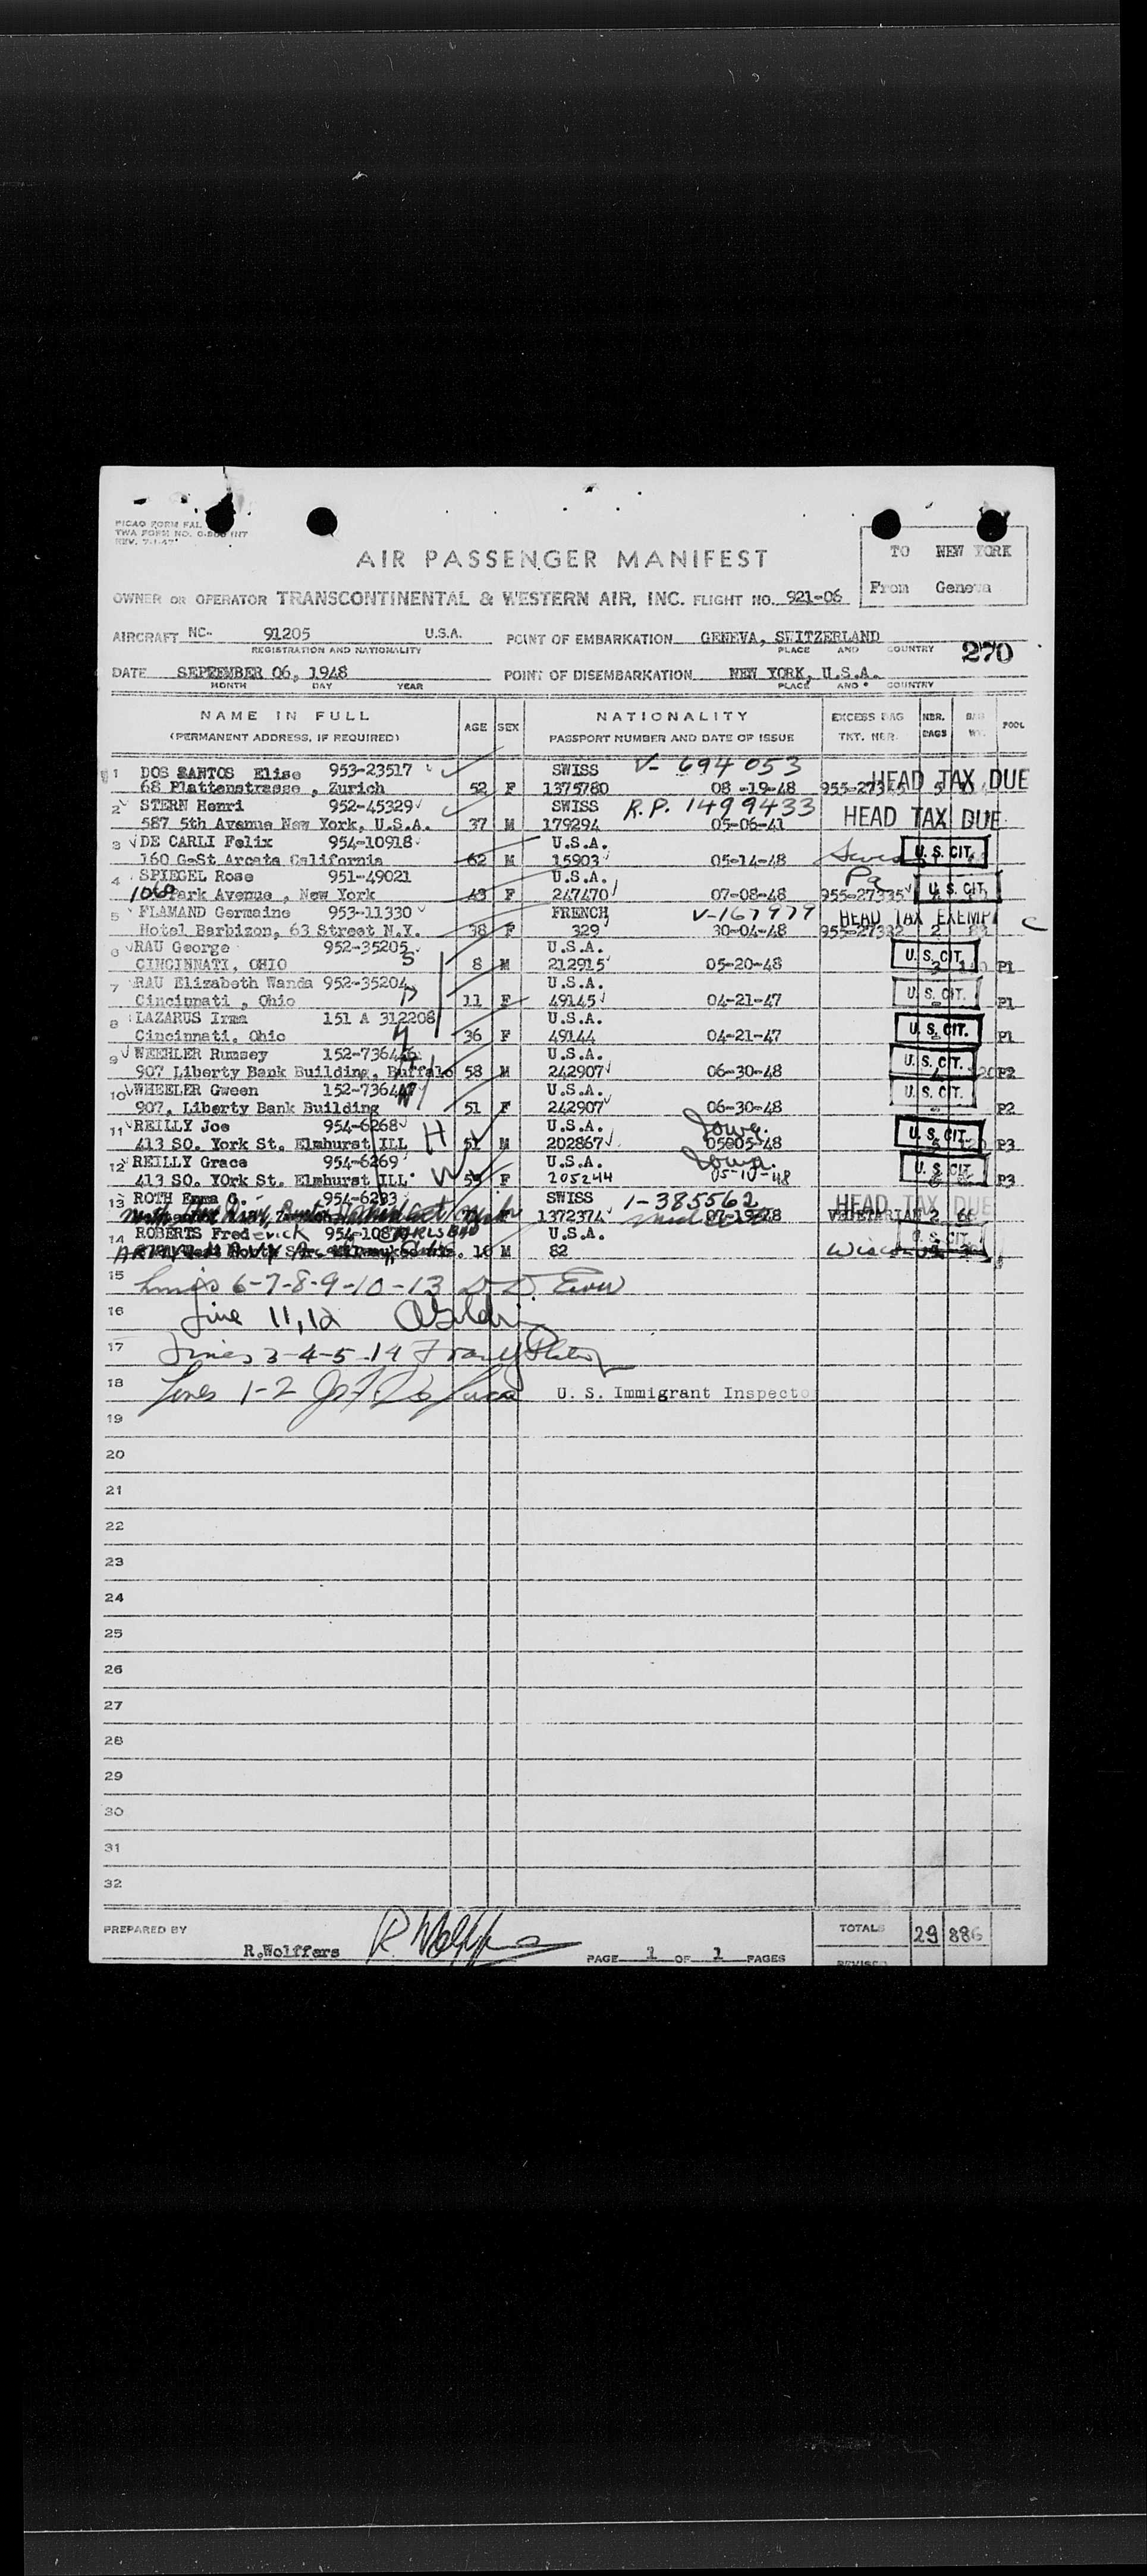 PICAO FORM FAL
TWA FORM NO. INT
REV. 7-1-47
TO NEW YORK
From Geneva
AIR PASSENGER MANIFEST
OWNER OR OPERATOR TRANSCONTINENTAL & WESTERN AIR, INC. FLIGHT NO. 921-06
AIRCRAFT NC- 91205 U.S.A. POINT OF EMBARKATION GENEVA, SWITZERLAND
REGISTRATION AND NATIONALITY PLACE AND COUNTRY
270
DATE SEPTEMBER 06, 1948 POINT OF DISEMBARKATION NEW YORK, U.S.A.
MONTH DAY YEAR PLACE AND COUNTRY
NAME IN FULL AGE SEX NATIONALITY EXCESS BAG NBR. BAG
(PERMANENT ADDRESS, IF REQUIRED) PASSPORT NUMBER AND DATE OF ISSUE TKT. NBR. BAGS WT. POOL
1 DOS SANTOS Elise 953-23517 SWISS V- 694053 HEAD TAX DUE
68 Plattenstrasse , Zurich 52 F 1375780 08 -19-48
2 STERN Henri 952-45329 SWISS R.P. 1499433 HEAD TAX DUE
587 5th Avenue New York, U.S.A. 37 M 179294 05-06-41
3 DE CARLI Felix 954-10918 U.S.A. U.S. CIT.
160 G-St Arcata California 62 M 15903 05-14-48
4 SPIEGEL Rose 951-49021 U.S.A. Pa
1069 Park Avenue , New York 43 F 247470 07-08-48 955-27335 U.S. CIT.
5 FLAMAND Germaine 953-11330 FRENCH V-167979 HEAD TAX EXEMPT C
Hotel Barbizon, 63 Street N.Y. 38 F 329 30-04-48 955-27332 2
6 RAU George 952-35205 U.S.A. U.S. CIT.
CINCINNATI, OHIO 8 M 212915 05-20-48 P1
7 RAU Elizabeth Wanda 952-35204 U.S.A. U.S. CIT.
Cincinnati , Ohio 11 F 49145 04-21-47 P1
8 LAZARUS Irma 151 A 312208 U.S.A. U.S. CIT.
Cincinnati, Ohio 36 F 49144 04-21-47 P1
9 WEEHLER Rumsey U.S.A. U.S. CIT.
907 Liberty Bank Building, Buffalo 58 M 242907 06-30-48 P2
10 WHEELER Gween U.S.A. U.S. CIT.
907, Liberty Bank Building 51 F 242907 06-30-48 P2
11 REILLY Joe 954-6268 H U.S.A. Iowa. U.S. CIT.
413 SO. York St. Elmhurst ILL 51 M 202867 05-05-48 P3
12 REILLY Grace 954-6269 W U.S.A. Iowa. U.S. CIT.
413 SO. YOrk St. Elmhurst ILL F 205244 05-10-48 P3
13 ROTH Emma G. 954-6283 SWISS 1-385562 HEAD TAX DUE
F 1372374 VEGETARIAN 2
14 ROBERTS Frederick U.S.A. U.S. CIT.
M 82 Wisconsin
15 Lines 6-7-8-9-10-13
16 Line 11,12
17 Lines 3-4-5-14
18 Lines 1-2 U. S. Immigrant Inspector
19
20
21
22
23
24
25
26
27
28
29
30
31
32
PREPARED BY R.Wolffers R. Wolffers PAGE 1 OF 1 PAGES TOTALS 29 886
REVISED